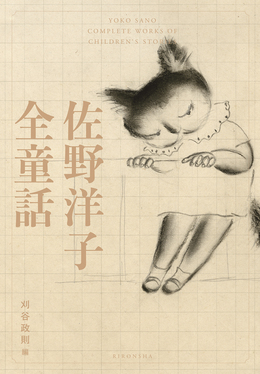 YOKO SANO
COMPLETE WORKS OF
CHILDREN'S
佐野洋子
全童話
刈谷政則 編